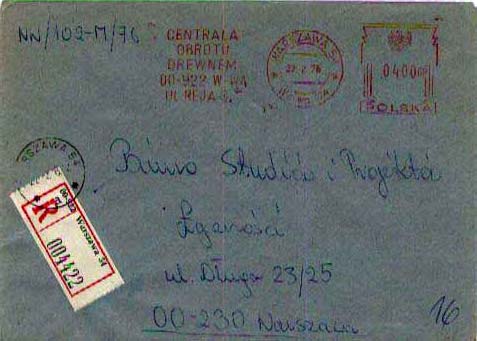 NN/102-M/76
CENTRALA
OBROTU
DREWNEM
00-922 W-WA
UL REJA
WARSZAWA 54
27.2.76
0400
POLSKA
RSZAWA 54
R
Warszawa 54
004422
Biuro Studiów i Projektów
Łączności
ul. Długa 23/25
00-230 Warszawa
16